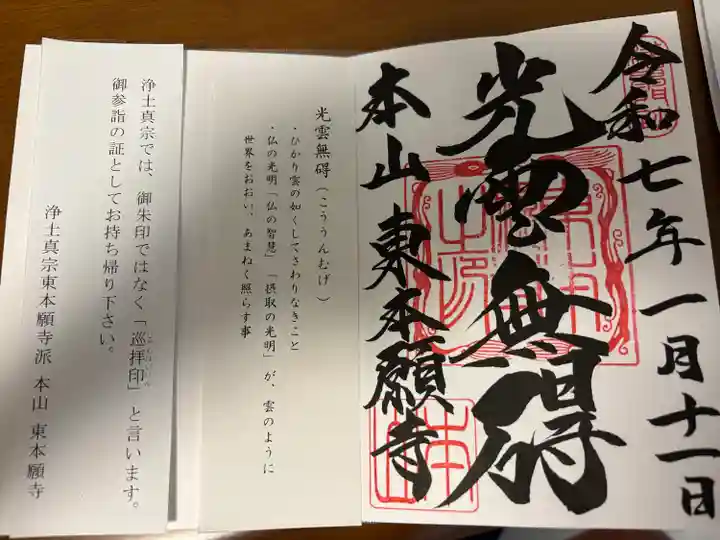 令和七年一月十一日
光雲無碍
本山東本願寺
光雲無碍（こううんむげ）
・ひかり雲の如くしてさわりなきこと
・仏の光明「仏の智慧」「摂取の光明」が、雲のように
世界をおおい、あまねく照らす事
浄土真宗では、御朱印ではなく「巡拝印」と言います。
じゅんぱいいん
御参詣の証としてお持ち帰り下さい。
浄土真宗東本願寺派 本山 東本願寺